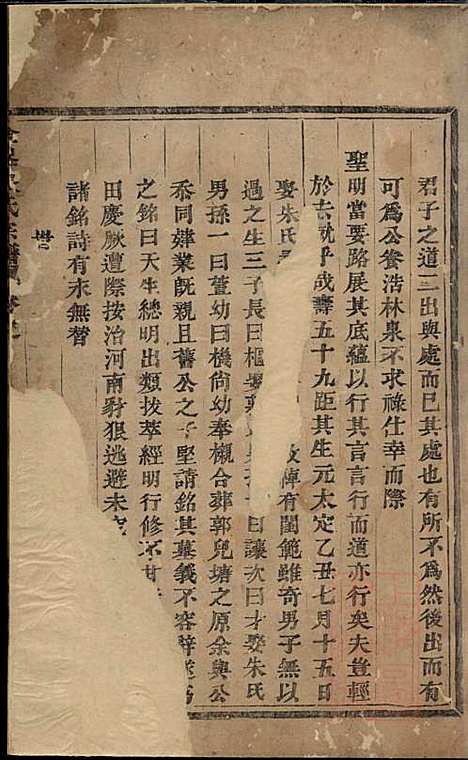 君子之道二出與處而已其處也有所不為然後出而有
可為公養浩林泉不求祿仕幸而際
聖明當要路展其底蘊以行其言言行而道亦行矣夫豈輕
於去就乎歲壽五十九距其生元太定乙丑七月十五日
娶朱氏 悼有閫範雖奇男子無以
過之生三子長曰樞 曰讓次曰才娶朱氏
男孫一曰蓳幼曰機尙幼奉櫬合葬郭兒塘之原余與公
忝同肄業既親且舊公之子堅請銘其墓義不容辭遂為
之銘曰天生總明出類拔萃經明行修不
田慶厥遭際按治河南豺狠逃避未
諸銘詩有永無替
氏宗譜